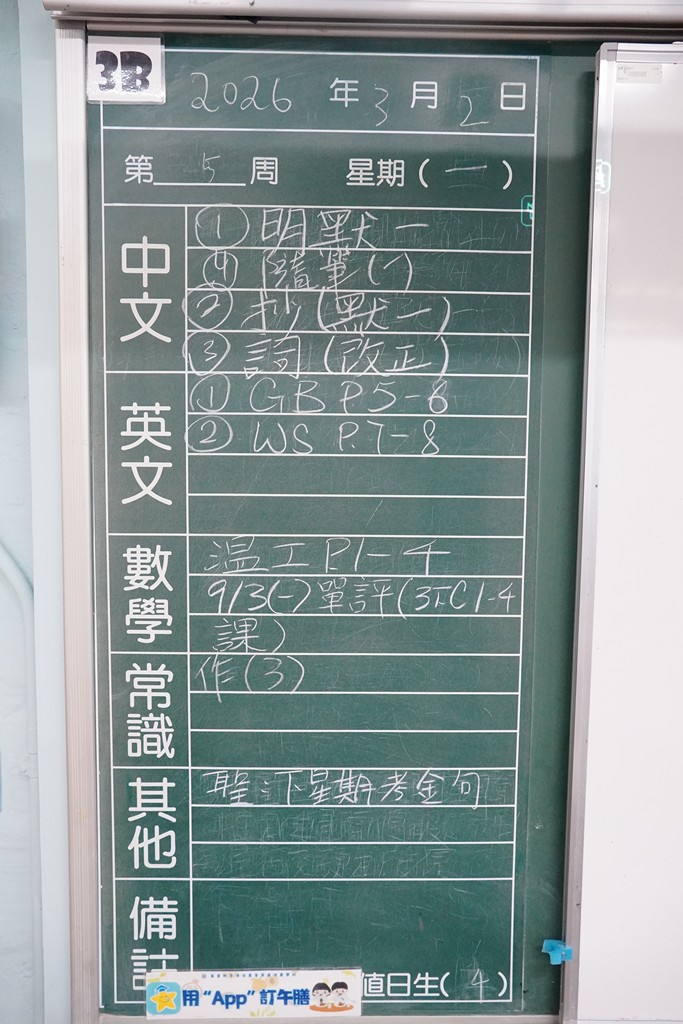 3B
2026 年 3 月 2 日
第 5 周 星期 ( 一 )
中文
① 明默一
④ 隨筆(一)
② 抄(默一)
③ 詞(改正)
英文
① GB P.5-6
② WS P.7-8
數學
溫工 P.1-4
9/3(一)單評(3下C 1-4
課)
常識
作(3)
其他
聖:下星期考金句
備註
值日生( 4 )
用 “App” 訂午膳